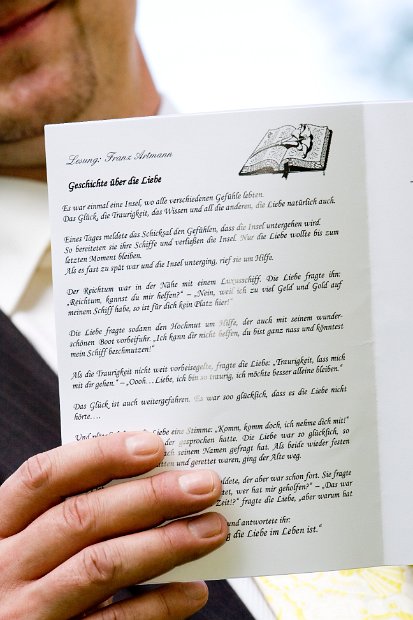 Lesung: Franz Artmann
Geschichte über die Liebe
Es war einmal eine Insel, wo alle verschiedenen Gefühle lebten.
Das Glück, die Traurigkeit, das Wissen und all die anderen, die Liebe natürlich auch.
Eines Tages meldete das Schicksal den Gefühlen, dass die Insel untergehen wird.
So bereiteten sie ihre Schiffe und verließen die Insel. Nur die Liebe wollte bis zum
letzten Moment bleiben.
Als es fast zu spät war und die Insel unterging, rief sie um Hilfe.
Der Reichtum war in der Nähe mit einem Luxusschiff. Die Liebe fragte ihn:
„Reichtum, kannst du mir helfen?“ – „Nein, weil ich zu viel Geld und Gold auf
meinem Schiff habe, so ist für dich kein Platz hier!“
Die Liebe fragte sodann den Hochmut um Hilfe, der auch mit seinem wunder-
schönen Boot vorbeifuhr. „Ich kann dir nicht helfen, du bist ganz nass und könntest
mein Schiff beschmutzen!“
Als die Traurigkeit nicht weit vorbeisegelte, fragte die Liebe: „Traurigkeit, lass mich
mit dir gehen.“ – „Oooh…Liebe, ich bin so traurig, ich möchte besser alleine bleiben.“
Das Glück ist auch weitergefahren. Es war soo glücklich, so dass es die Liebe nicht
hörte….
eine Stimme: „Komm, komm doch, ich nehme dich mit!“
der gesprochen hatte. Die Liebe war so glücklich, so
seinen Namen gefragt hat. Als beide wieder festen
und gerettet waren, ging der Alte weg.
, der aber war schon fort. Sie fragte
, wer hat mir geholfen?“ – „Das war
Zeit!?“ fragte die Liebe, „aber warum hat
und antwortete ihr:
die Liebe im Leben ist.“